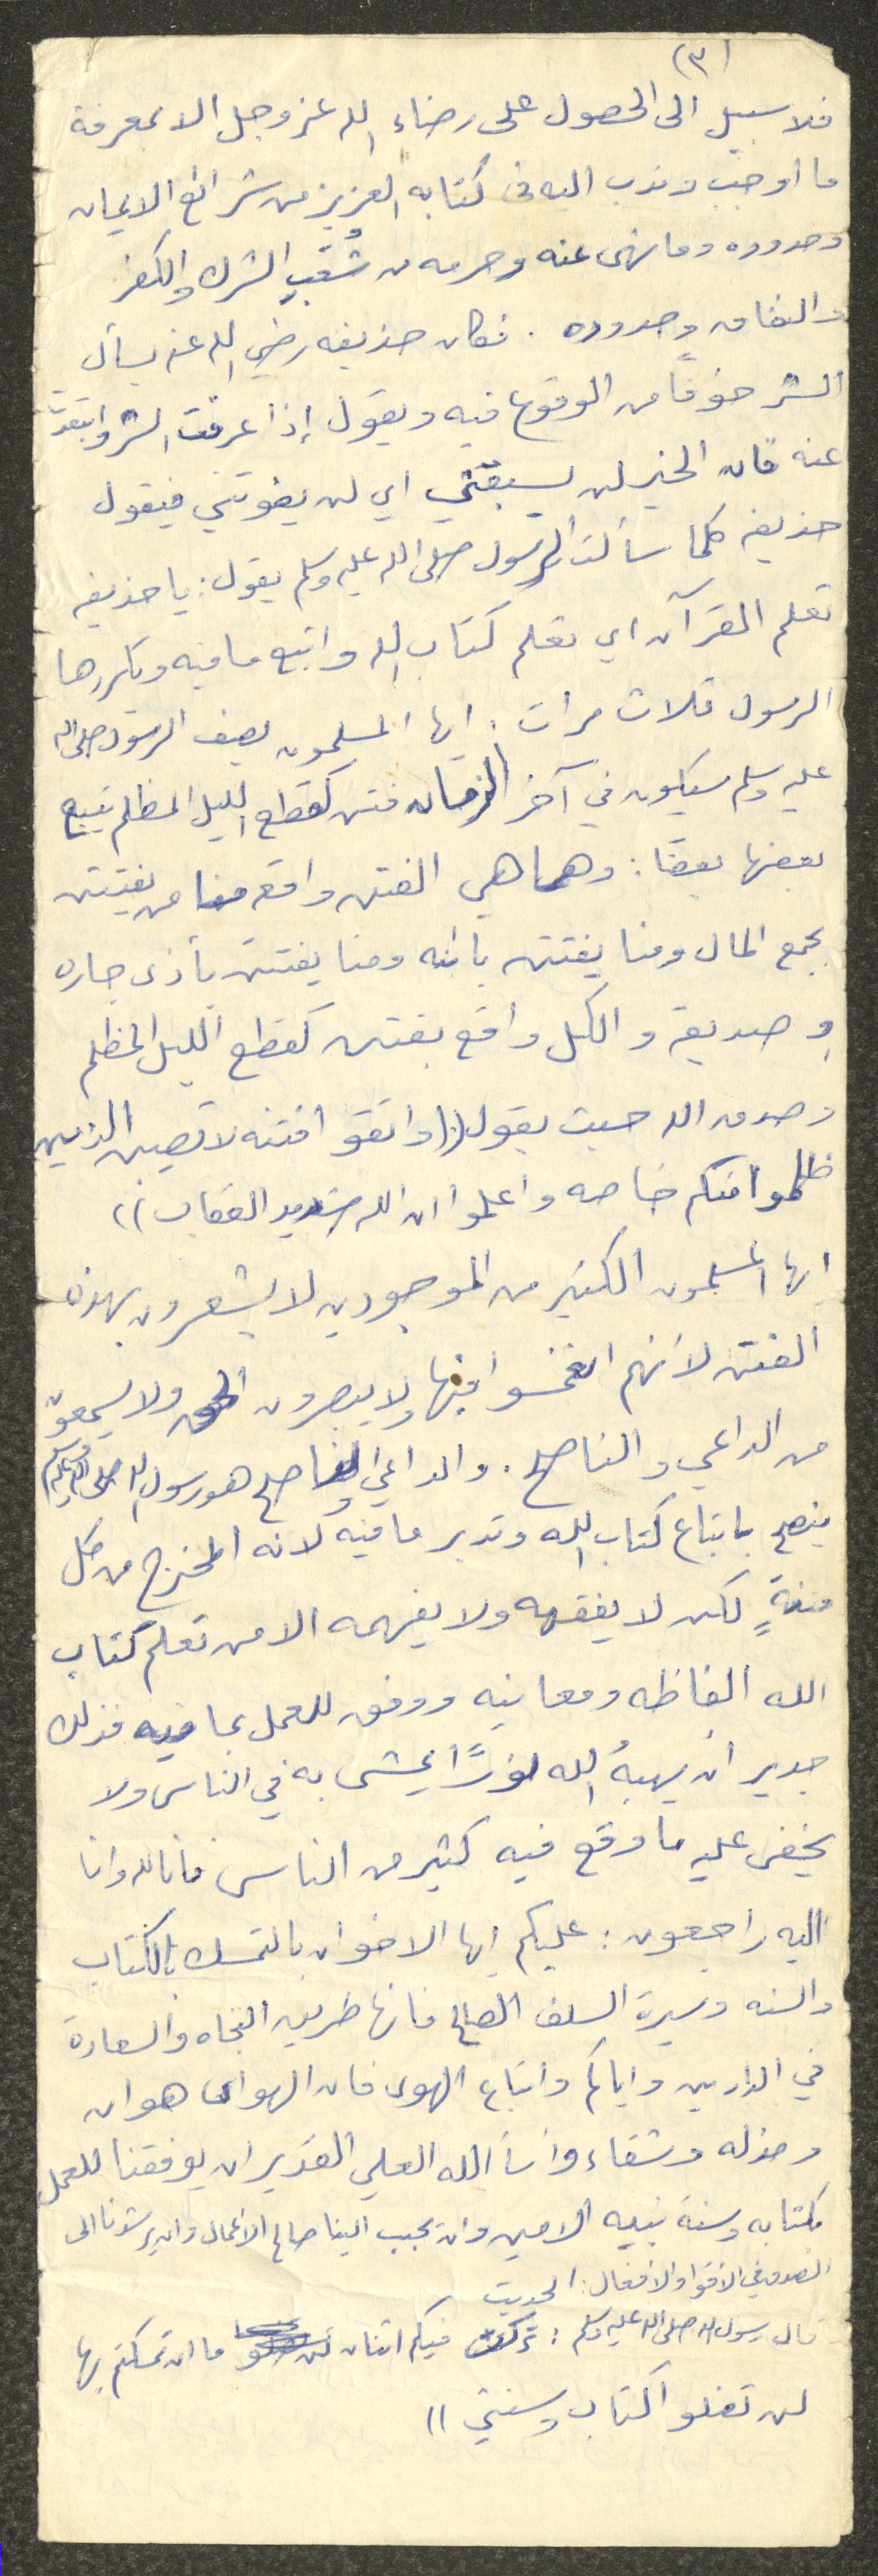 (٣)
فلا سبيل الى الحصول على رضاء الله عز وجل الا بمعرفة
ما أوجب وندب اليه فى كتابه العزيز من شرائع الايمان
وحدوده وما نهى عنه وحرمه من شُعَبِ الشرك والكفر
والنفاق وحدوده . فكان حذيفه رضي الله عنه يسأل
الشر خوفًا من الوقوع فيه ويقول إذا عرفت الشر وابتعدت
عنه فان الخير لن يسبقني اي لن يفوتني فيقول
حذيفه كلما سألت الرسول صلى الله عليه وسلم يقول : يا حذيفه
تعلم القرآن اي تعلم كتاب الله واتبع ما فيه ويكررها
الرسول ثلاث مرات . ايها المسلمون يصف الرسول صلى الله
عليه وسلم سيكون في آخر الزمان فتن كقطع الليل المظلم يتبع
بعضها بعضًا : وهاهي الفتن واقعه منا من يفتتن
بجمع المال ومنا يفتتن بابنه ومنا يفتتن بأذى جاره
وصديقه والكل واقع بفتن كقطع الليل المظلم
وصدق الله حيث يقول (( واتقو افتنه لا تصيبن الذين
ظلموا منكم خاصه واعلموا ان الله شديد العقاب ))
ايها المسلمون الكثير من الموجودين لا يشعرون بهذه
الفتن لأنهم انغمسوا فيها ولا يبصرون الحق ولا يسمعون
من الداعي والناصح . والداعي والناصح هو رسول الله صلى الله عليه وسلم
ينصح باتباع كتاب الله وتدبر ما فيه لانه المخرج من كل
فتنةٍ لكن لا يفقهه ولا يفهمه الا من تعلم كتاب
الله الفاظه ومعانيه ووفق للعمل بما فيه فذلك
جدير ان يهبهُ الله نورًا يمشى به في الناس ولا
يخفى عليه ما وقع فيه كثير من الناس فانا لله وانا
اليه راجعون : عليكم ايها الاخوان بالتمسك بالكتاب
والسنه وسيرة السلف الصالح فانها طريق النجاه والسعادة
في الدارين واياكم واتباع الهوى فان الهوى هوان
ومذله وشقاء وأسأ الله العلي القدير ان يوفقنا للعمل
بكتابه وسنة نبيه الامين وان يحبب الينا صالح الاعمال وان يرشدنا الى
الصدق في الاقوا والافعال : الحديث
قال رسول الله صلى الله عليه وسلم : تركت فيكم اثنان ما ان تمسكتم بها
لن تضلو اكتاب وسنتي ))